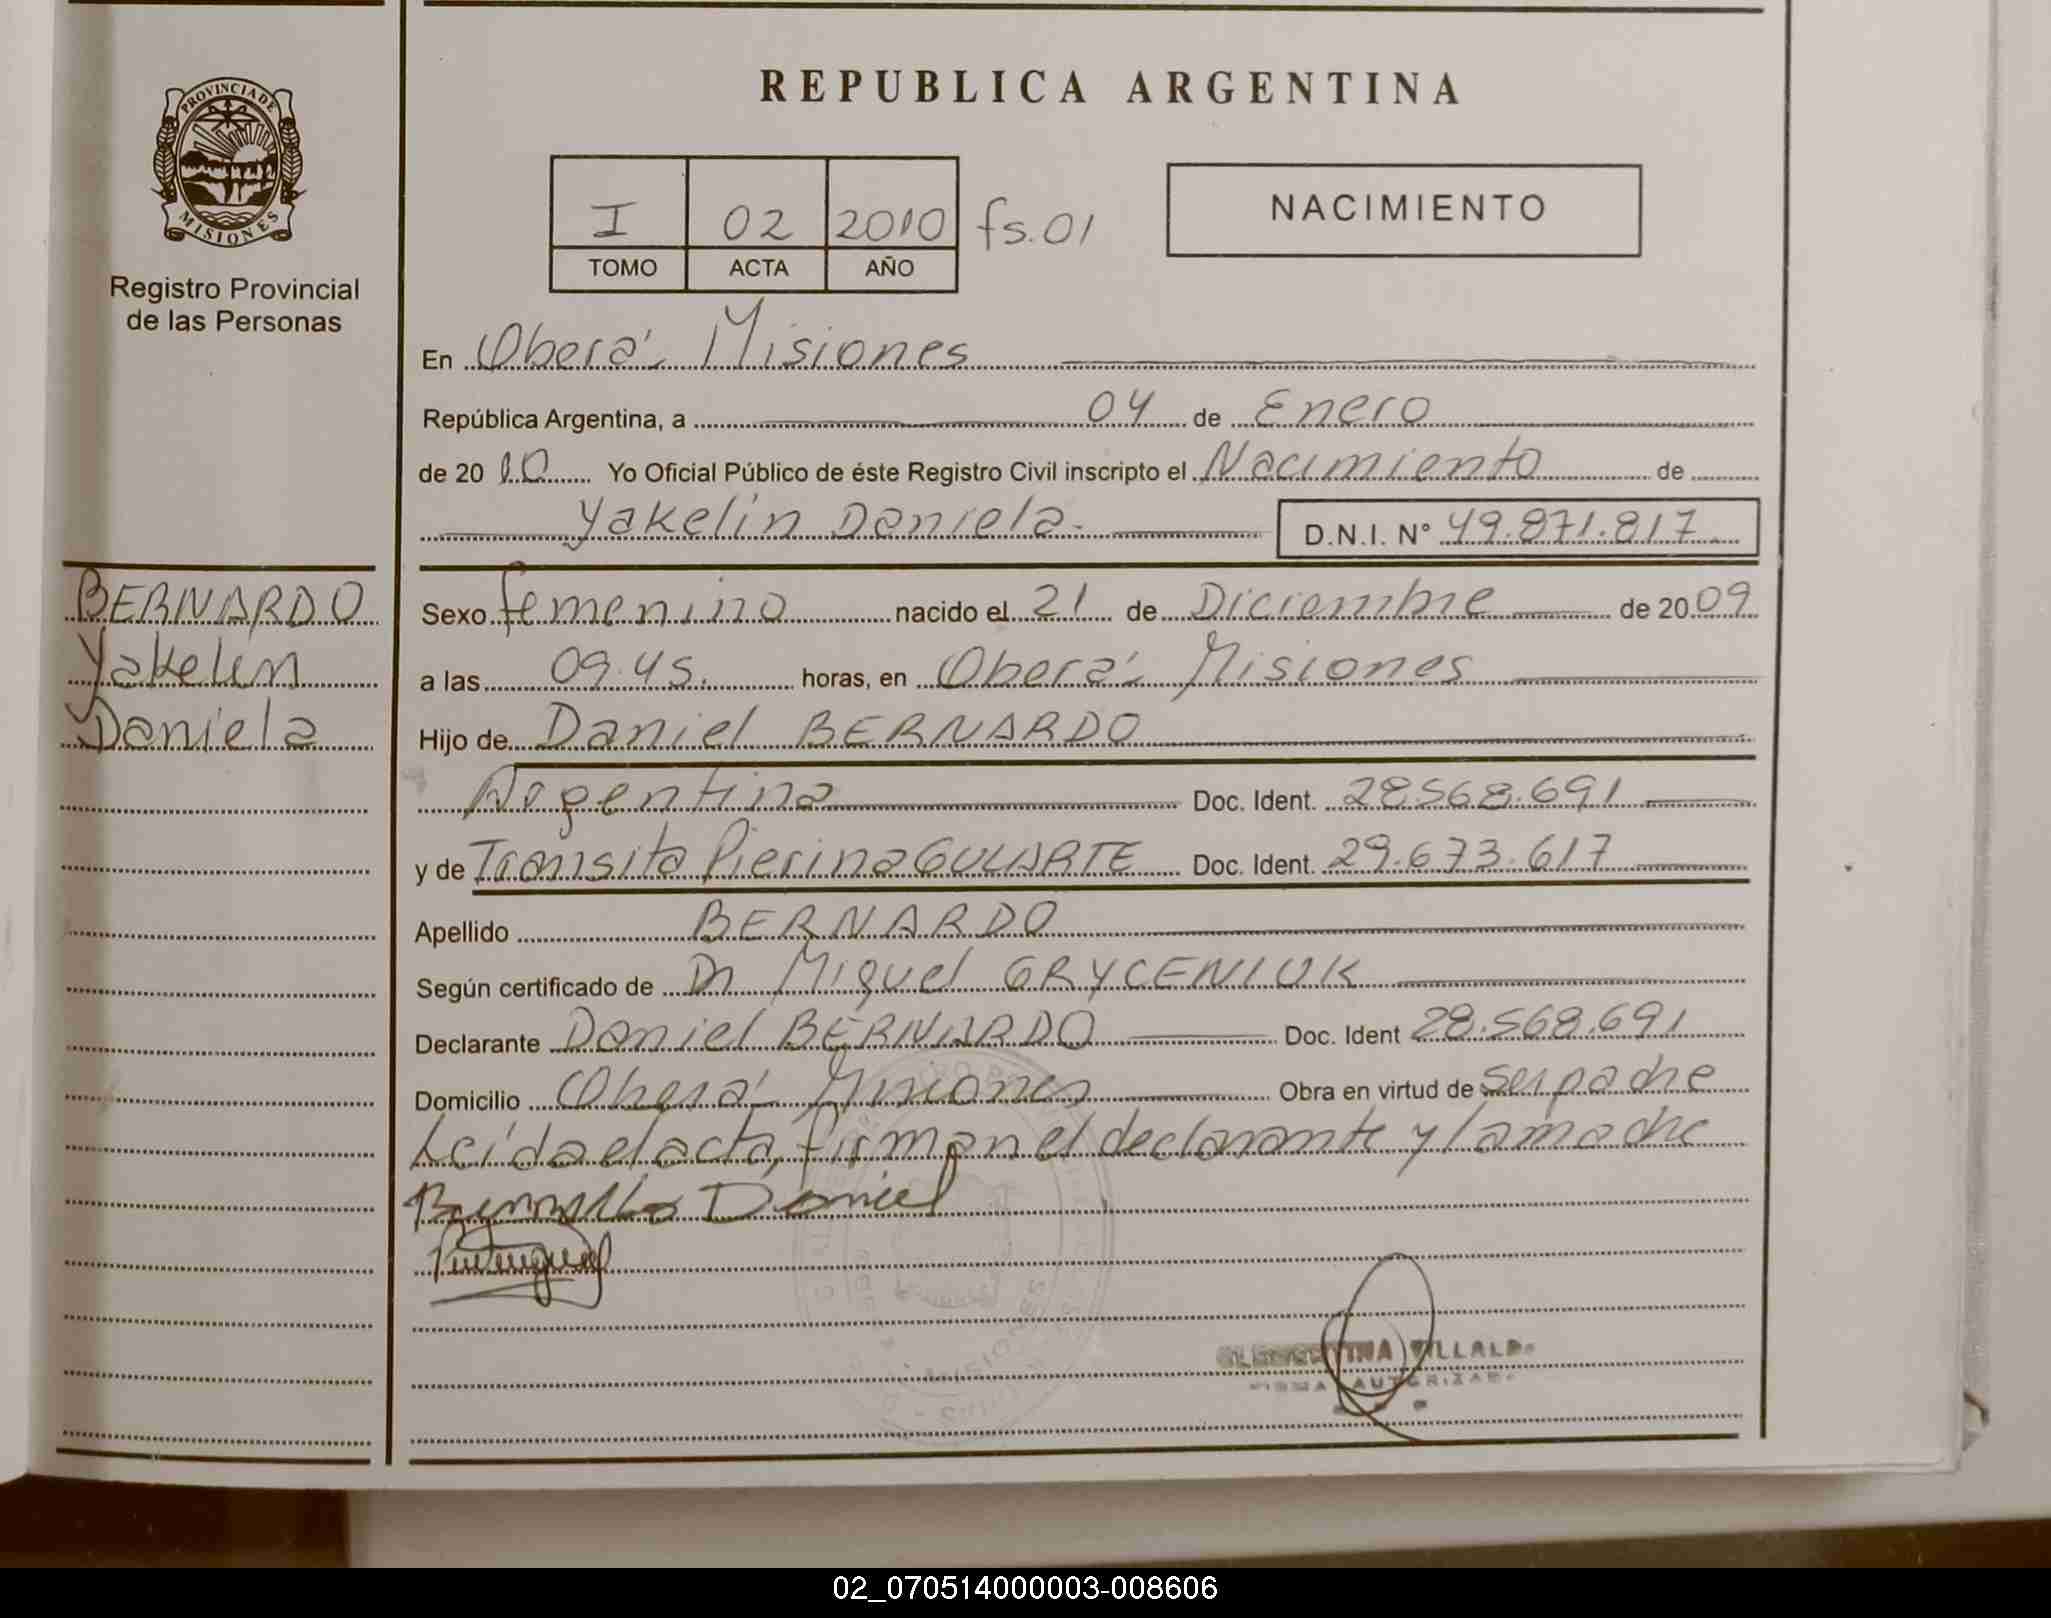 REPUBLICA ARGENTINA
PROVINCIA DE MISIONES
Registro Provincial
de las Personas
I 02 2010 fs.01
TOMO ACTA AÑO
NACIMIENTO
En Oberá - Misiones
República Argentina, a 04 de Enero
de 2010 Yo Oficial Público de éste Registro Civil inscripto el Nacimiento de
Yakelin Daniela. D.N.I. N° 49.871.817
BERNARDO
Yakelin
Daniela
Sexo femenino nacido el 21 de Diciembre de 2009
a las 09.45. horas, en Oberá - Misiones
Hijo de Daniel BERNARDO
Argentina Doc. Ident. 28.568.691
y de Transita Pierina GULARTE Doc. Ident. 29.673.617
Apellido BERNARDO
Según certificado de Dr Miguel GRYCENIUK
Declarante Daniel BERNARDO Doc. Ident 28.568.691
Domicilio Oberá - Misiones Obra en virtud de ser padre
Leída el acta, firman el declarante y la madre
Bernardo Daniel
CLEMENTINA VILLALB
FIRMA AUTORIZADA
02_070514000003-008606